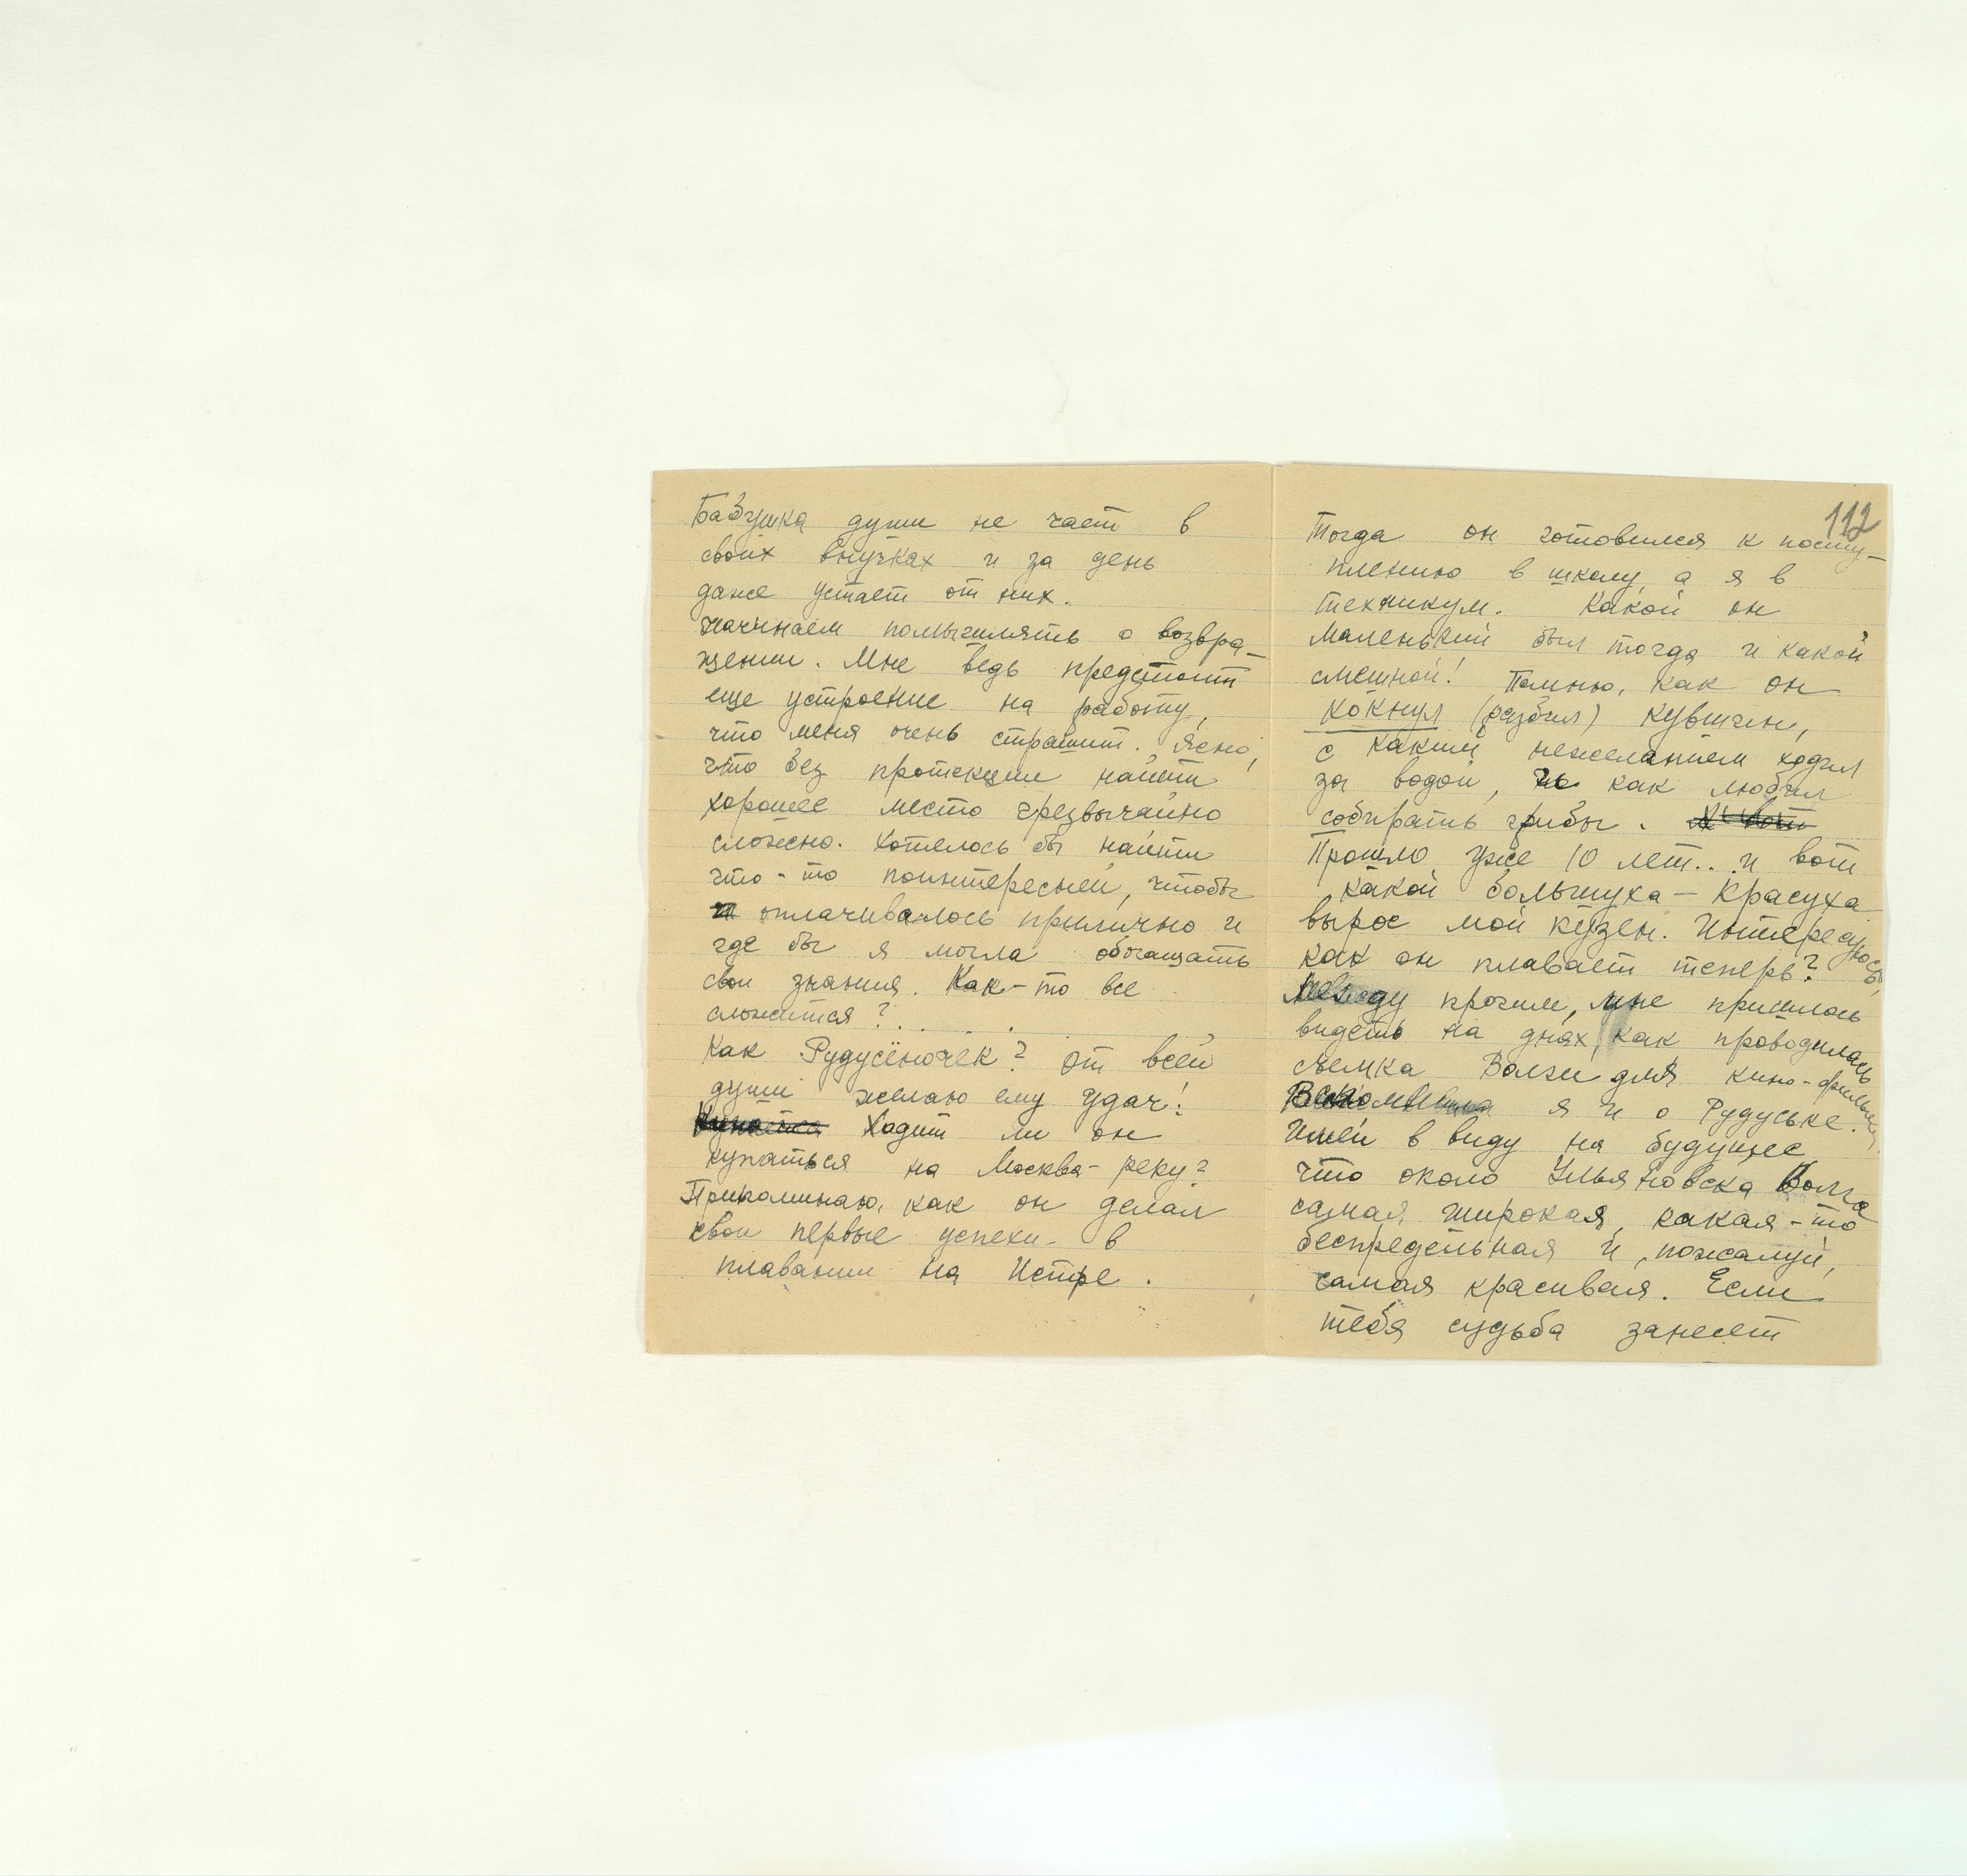 Бабушка души не чает в
своих внучках и за день
даже устает от них.
Начинаем помышлять о возвра-
щении. Мне ведь предстоит
еще устроение на работу,
что меня очень страшит. Ясно,
что без протекции найти
хорошее место чрезвычайно
сложно. Хотелось бы найти
что-то поинтересней, чтобы
оплачивалось прилично и
где бы я могла обогащать
свои знания. Как-то все
сложится?. . . .
Как Рудусёночек? От всей
души желаю ему удач!
Купается Ходит ли он
купаться на Москва-реку?
Припоминаю, как он делал
свои первые успехи в
плавании на Истре.
112
Тогда он готовился к посту-
плению в школу, а я в
техникум. Какой он
маленький был тогда и какой
смешной! Помню, как он
кокнул (разбил) кувшин,
с каким нежеланием ходил
за водой, но как любил
собирать грибы. И вот
Прошло уже 10 лет... и вот
какой большуха-красуха
вырос мой кузен. Интересуюсь,
как он плавает теперь?
Между прочим, мне пришлось
видеть на днях, как проводилась
съемка Волги для кино-фильма.
Вспомнила я и о Рудуське.
Имей в виду на будущее,
что около Ульяновска Волга
самая широкая, какая-то
беспредельная и, пожалуй,
самая красивая. Если
тебя судьба занесет